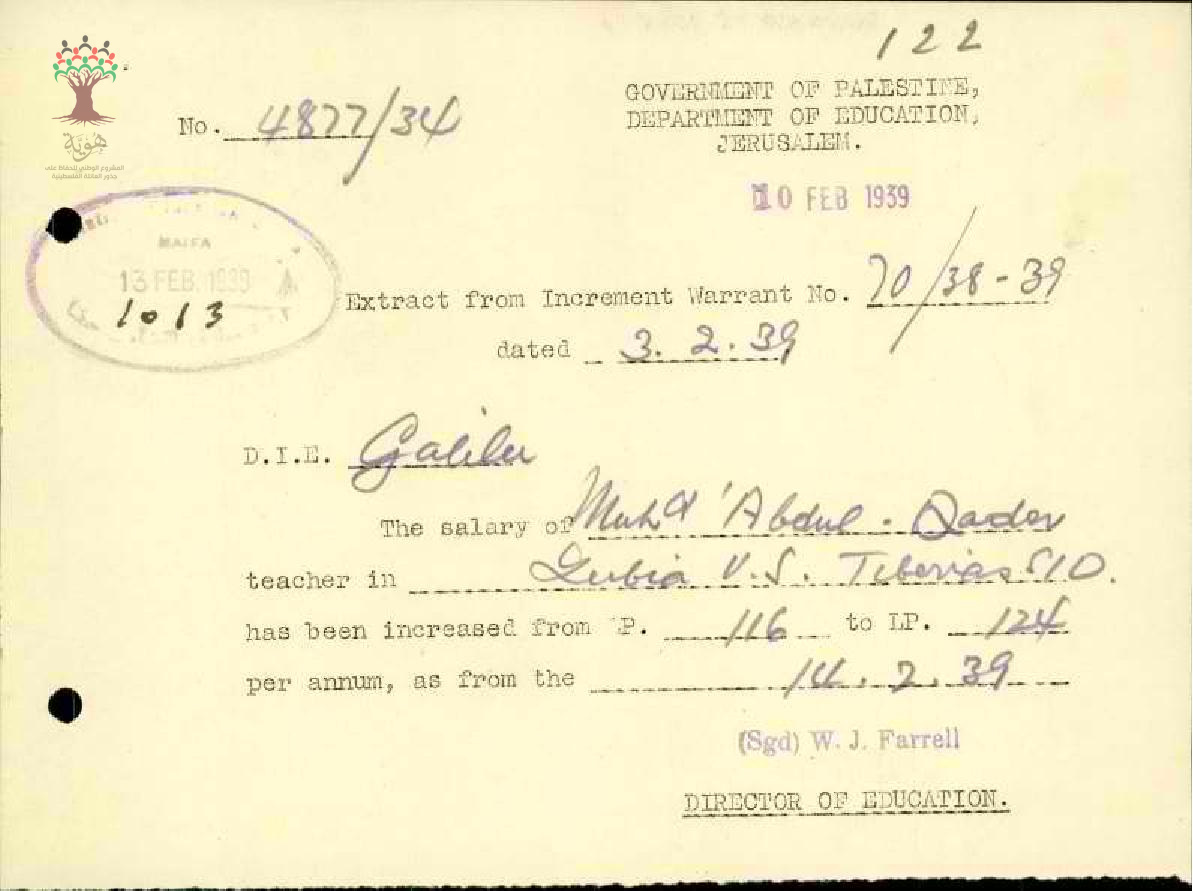 122
GOVERNMENT OF PALESTINE,
DEPARTMENT OF EDUCATION,
JERUSALEM.
No. 4877/34
هُويّة
المشروع الوطني للحفاظ على
جذور العائلة الفلسطينية
10 FEB 1939
HAIFA
13 FEB. 1939
1013
Extract from Increment Warrant No. 70/38-39
dated 3. 2. 39
D.I.E. Galilee
The salary of Muhd 'Abdul. Qader
teacher in Lubia V.S. Tiberias S/D.
has been increased from LP. 116 to LP. 124
per annum, as from the 14. 2. 39
(Sgd) W. J. Farrell
DIRECTOR OF EDUCATION.